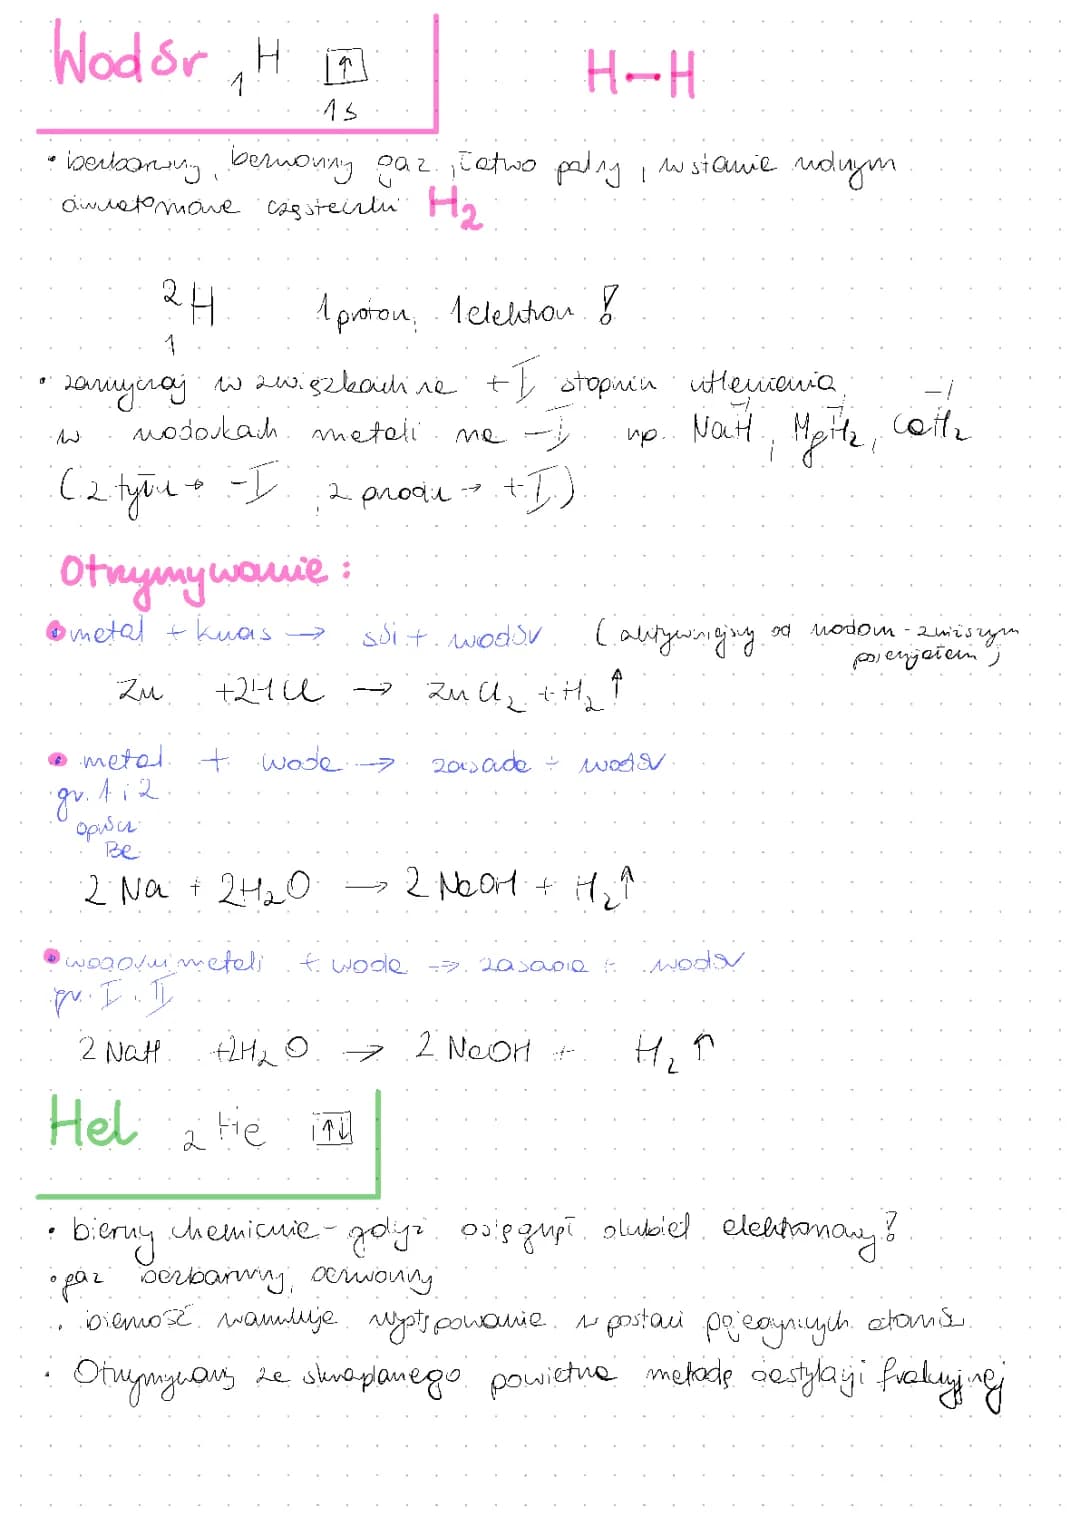 Wodór ₁H ↑ H–H
1s
• bezbarwny, bezwonny gaz, łatwo palny, w stanie wolnym
dwuatomowe cząsteczki H₂
²₁H 1 proton, 1 elektron !
• zazwyczaj w związkach na +I stopniu utlenienia
w wodorkach metali na -I np. NaH, MgH₂, CaH₂
(z tyłu → -I, z przodu → +I)
Otrzymywanie:
• metal + kwas → sól + wodór (aktywniejszy od wodoru - z niższym
potencjałem)
Zn + 2HCl → ZnCl₂ + H₂↑
• metal + woda → zasada + wodór
gr. 1 i 2
oprócz
Be
2 Na + 2H₂O → 2 NaOH + H₂↑
• wodorki metali + woda → zasada + wodór
gr. I i II
2 NaH + 2H₂O → 2 NaOH + H₂↑
Hel ₂He ↑↓
• bierny chemicznie - gdyż osiągnął dublet elektronowy!
• gaz bezbarwny, bezwonny
• bierność warunkuje występowanie w postaci pojedynczych atomów
• Otrzymywany ze skraplanego powietrza metodą destylacji frakcyjnej